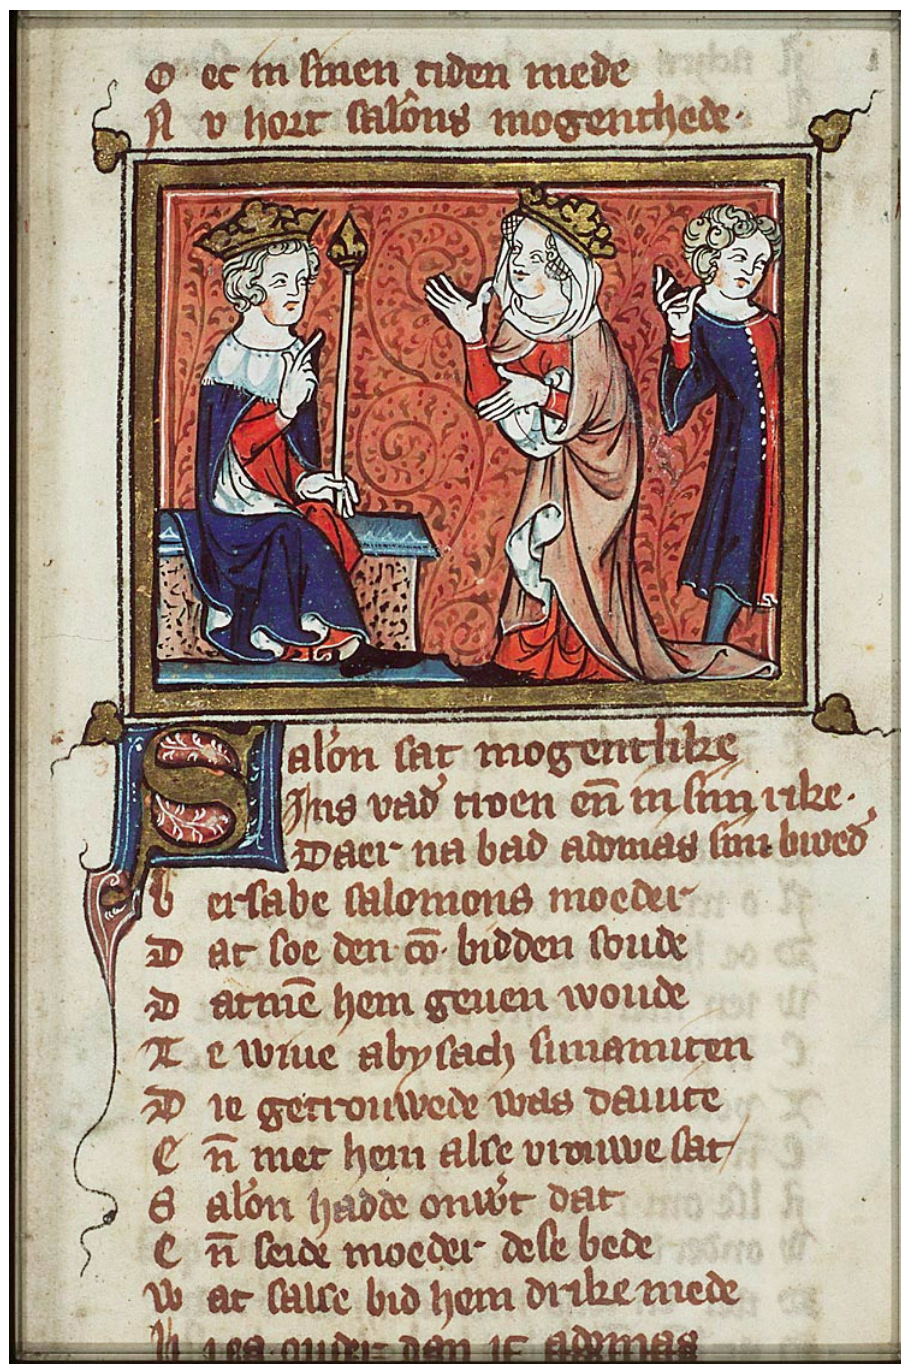 O ec in sinen tiden mede
N v hort salōns mogenthede.
Salōn sat mogentlike
Ins vad̄ troen en̄ in sijn rike.
Daer na bad adonias sin broed̄
b ersabe salomons moeder
D at soe den co̅. bidden soude
D atmē hem geuen woude
T e wiue abysach sunamiten
D ie getrouwede was dauite
E n̄ met hem alse vrouwe sat
S alōn hadde onwt dat
E n̄ seide moeder dese bede
W at salse bid hem drike mede
H i es ouder dan ic adonias